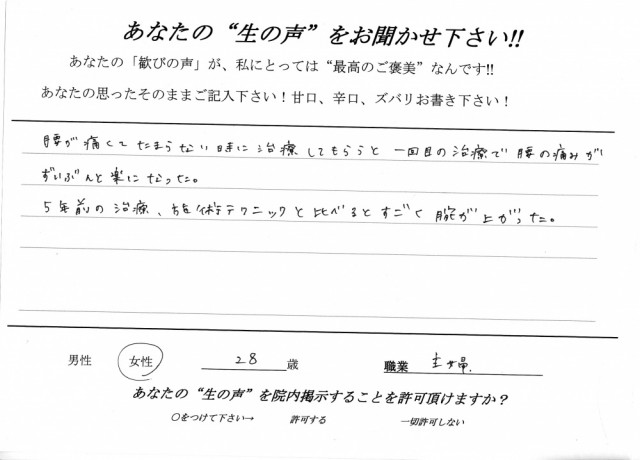 あなたの“生の声”をお聞かせ下さい!!
あなたの「歓びの声」が、私にとっては“最高のご褒美”なんです!!
あなたの思ったそのままご記入下さい！甘口、辛口、ズバリお書き下さい！
腰が痛くてたまらない時に治療してもらうと一回目の治療で腰の痛みが
ずいぶんと楽になった。
5年前の治療、施術テクニックと比べるとすごく腕が上がった。
男性 女性 28 歳 職業 主婦.
あなたの“生の声”を院内掲示することを許可頂けますか？
○をつけて下さい→ 許可する 一切許可しない